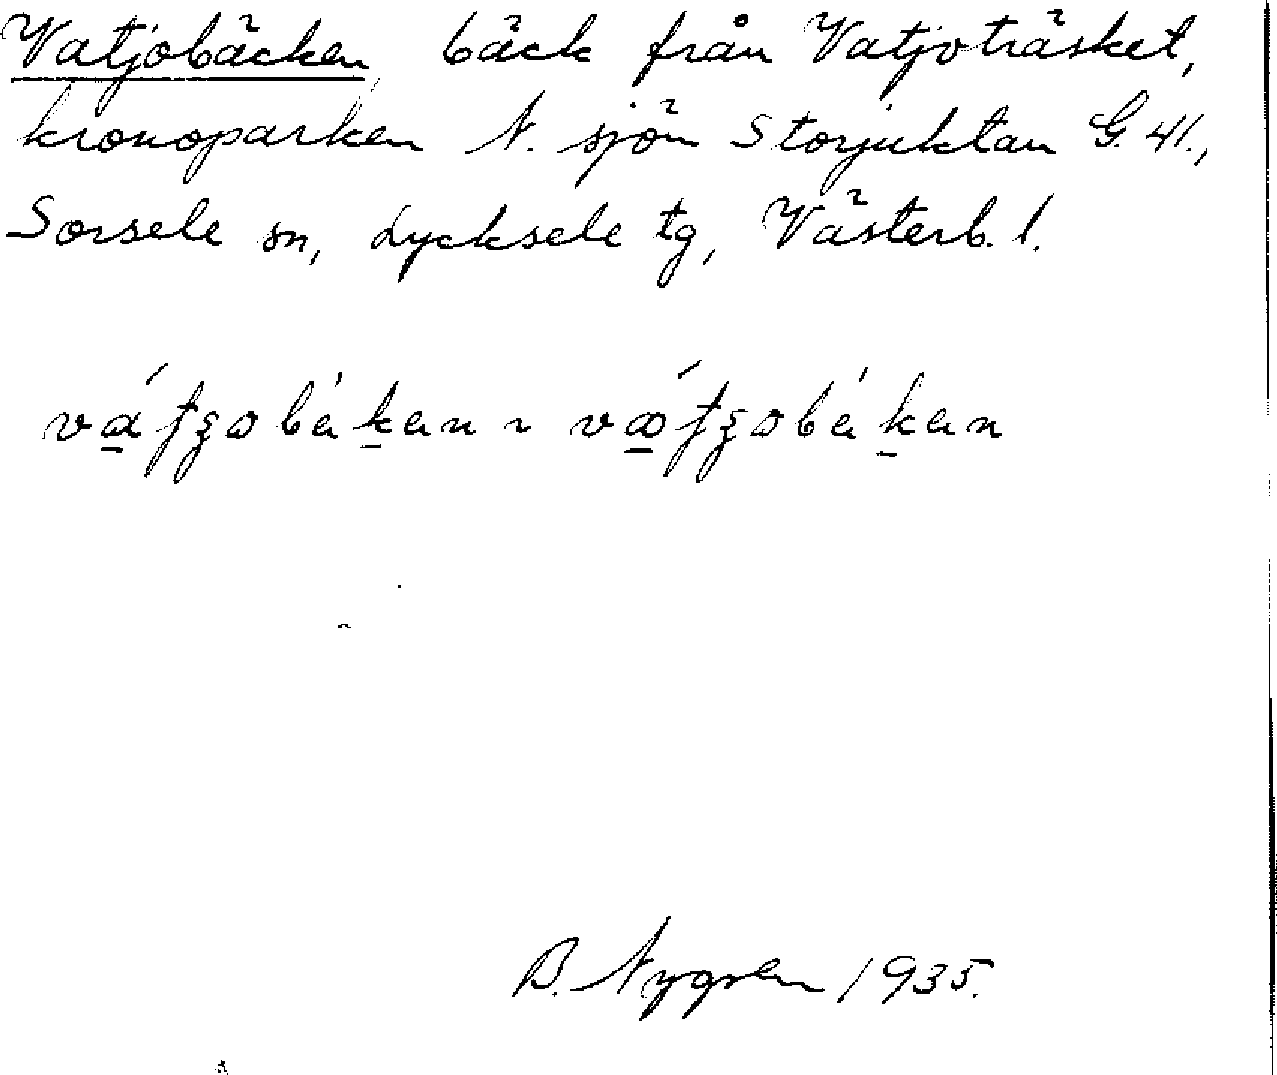 Vatjobäcken, bäck från Vatjoträsket,
kronoparken N. sjön Storjuktan G. 41.,
Sorsele sn, Lycksele tg, Västerb. l.
B. Nygren 1935.